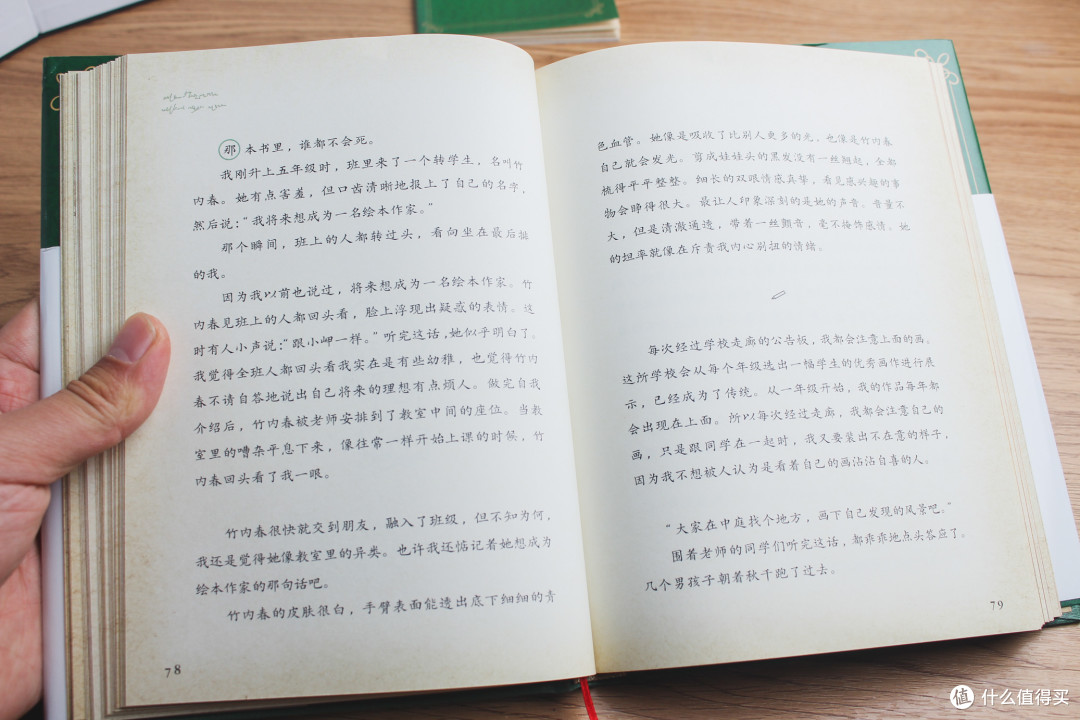 那本书里，谁都不会死。
我刚升上五年级时，班里来了一个转学生，名叫竹
内春。她有点害羞，但口齿清晰地报上了自己的名字，
然后说：“我将来想成为一名绘本作家。”
那个瞬间，班上的人都转过头，看向坐在最后排
的我。
因为我以前也说过，将来想成为一名绘本作家。竹
内春见班上的人都回头看，脸上浮现出疑惑的表情。这
时有人小声说：“跟小岬一样。”听完这话，她似乎明白了。
我觉得全班人都回头看我实在是有些幼稚，也觉得竹内
春不请自答地说出自己将来的理想有点烦人。做完自我
介绍后，竹内春被老师安排到了教室中间的座位。当教
室里的嘈杂平息下来，像往常一样开始上课的时候，竹
内春回头看了我一眼。
竹内春很快就交到朋友，融入了班级，但不知为何，
我还是觉得她像教室里的异类。也许我还惦记着她想成为
绘本作家的那句话吧。
竹内春的皮肤很白，手臂表面能透出底下细细的青
78
色血管。她像是吸收了比别人更多的光，也像是竹内春
自己就会发光。剪成娃娃头的黑发没有一丝翘起，全都
梳得平平整整。细长的双眼情感真挚，看见感兴趣的事
物会睁得很大。最让人印象深刻的是她的声音。音量不
大，但是清澈通透，带着一丝颤音，毫不掩饰感情。她
的坦率就像在斥责我内心别扭的情绪。
每次经过学校走廊的公告板，我都会注意上面的画。
这所学校会从每个年级选出一幅学生的优秀画作进行展
示，已经成为了传统。从一年级开始，我的作品每年都
会出现在上面。所以每次经过走廊，我都会注意自己的
画，只是跟同学在一起时，我又要装出不在意的样子，
因为我不想被人认为是看着自己的画沾沾自喜的人。
“大家在中庭找个地方，画下自己发现的风景吧。”
围着老师的同学们听完这话，都乖乖地点头答应了。
几个男孩子朝着秋千跑了过去。
79
值 什么值得买